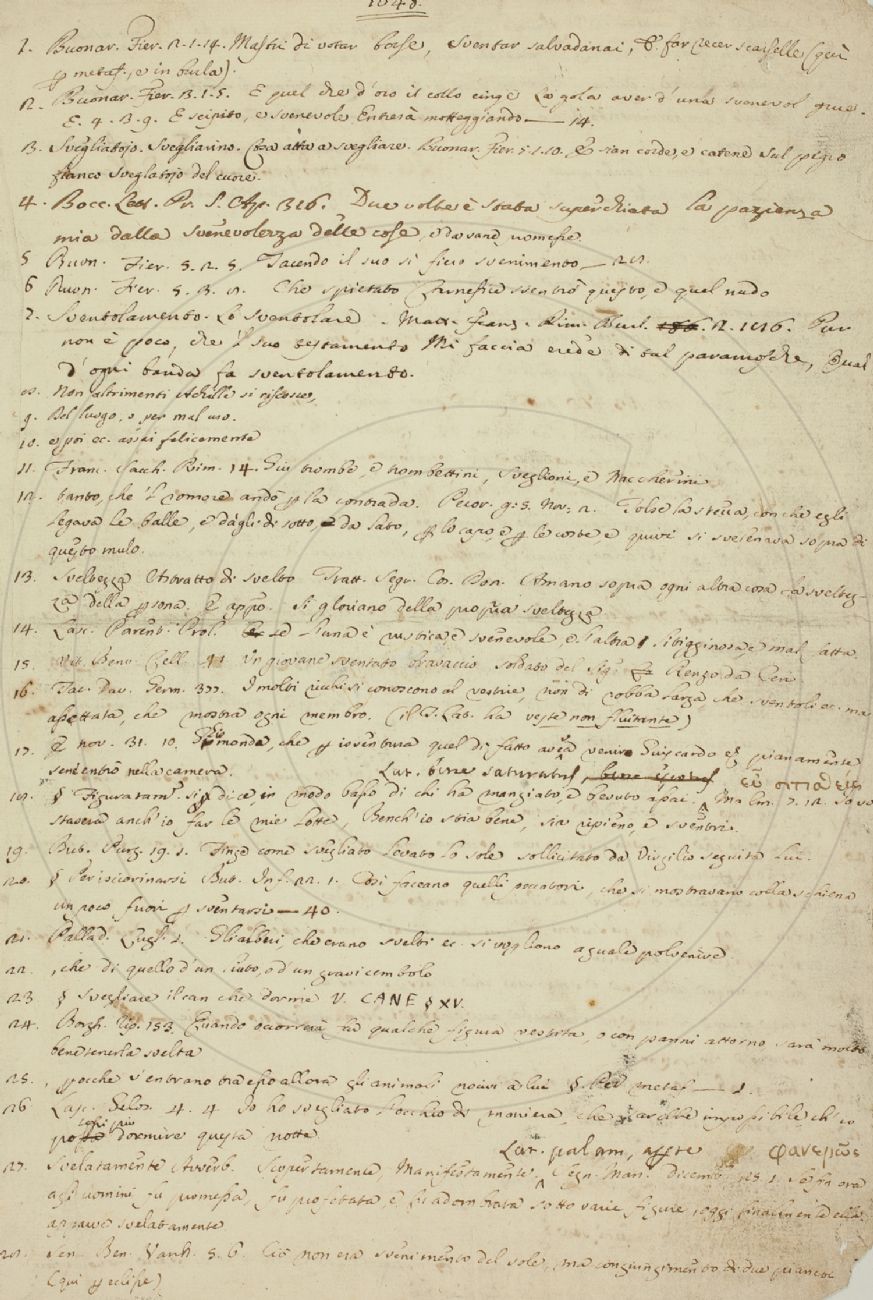 1048.
1. Buonar. Fier. 2. 1. 14. Mastri di votar borse, sventar salvadanai, E far recer scarselle (qui
p metaf., e in burla).
2. Buonar. Fier. 3. 1. 5. E quel che d'oro il collo cinge La gola aver d'una svenevol grue.
E. 4. 3. 9. E scipito, e svenevole Entrerà motteggiando — 14.
3. Svegliatojo. Svegliarino. Cosa atta a svegliare. Buonar. Fier. 5. 1. 10. E sian corde, e catene Sul pigro
fianco svegliatojo del cuore.
4. Bocc. Lett. Pr. S. Ap. 316. Due volte è stata superchiata la pazienza
mia dalla svenevolezza delle cose,
5 Buon. Fier. 5. 2. 5. Facendo il suo si ficio svenimento — 20.
6 Buon. Fier. 5. 3. 8. Che spietato Carnefice sventrò questo, e quel nudo
7. Sventolamento. Lo sventolare. Matt. Franz. Rim. Burl. 2. 116. Pur
non è poco, che 'l suo testamento Mi faccia erede di tal paramosche, Qual
d'ogni banda fa sventolamento.
8. Non altrimenti Achille si riscosse,
9. Bel luogo. o per mal uso.
10. e poi ec. assai felicemente
11. Franc. Sacch. Rim. 14. Giu trombe, e trombettini, Sveglioni, e Naccherini
12. tanto, che 'l romore andò p la contrada. Pecor. g. 5. Nov. 2. Tolse la stecca, con che egli
legava le balle, e dagli di sotto e da lato, p lo capo, e p le coste, e quivi si svenava sopra di
questo mulo.
13. Sveltezza Astratto di svelto Tratt. Segr. Cos. Don. Amano sopra ogni altra cosa la sveltez-
za della psona. E appo. Si gloriano della propria sveltezza
14. Lasc. Parent. Prol. Se l'una è rustica e svenevole, e l'altra Sbizzinosa e mal fatta
15. Vit. Benv. Cell. 41 Un giovane sventato bravaccio soldato del Sig. Renzo da Ceri
16. Tac. Dav. Germ. 377. I molti ricchi si conoscono al vestire, non di robba sarza, che sventoli ec. ma
assettata, che mostra ogni membro. (il T. Lat. ha veste non fluitante)
17. E nov. 31. 10. Ghismonda, che p isventura quel dì fatto avea venire Guiscardo ec. pianamente
sen entrò nella camera. Lat. bene saturatus,
18. § Figuratam. si dice in modo basso di chi ha mangiato, e bevuto assai. Malm. 7. 12. So
starmi anch'io far le mie lotte, Bench'io stia bene, sia ripieno, e sventri.
19. But. Purg. 19. 1. Finge come svegliato levato lo sole sollicitato da Virgilio seguita lui.
20. § Per isciorinarsi But. Inf. 22. 1. Così faceano quelli peccatori, che si mostravano colla schiena
un poco fuori p sventarsi — 40.
21. Pallad. Lugl. 1. Gli alberi, che erano svelti ec. si vogliono aguale polverire
22. , che di quello d'un liuto, o d'un gravicembolo
23 § Svegliare il can che dorme V. CANE § XV.
24. Borgh. Rip. 153. Quando occorrerà far qualche figura vestita, o con panni attorno sarà molto
bene tenerla svelta
25. , p'ocche s'entrano tra esso allora gli animali nocivi a lui § Per metaf — 1.
26 Lasc. Gelos. 4. 4 Io ho svegliato l'occhio di maniera, che sarebbe impossibile ch'io
più dormire questa notte
Lat. palam, aperte φανερῶς
27. Svelatamente Avverb. Scopertamente, Manifestamente, Segn. Mann. Dicemb. 25. 1.
agli uomini fu promessa, fu profetata e fu adombrata sotto varie figure, oggi finalmente ella
appare svelatamente
28. Sen. Ben. Varch. 5. 6. Ciò non era svenimento del sole, ma congiungimento di due pianeti
(qui p eclisse)